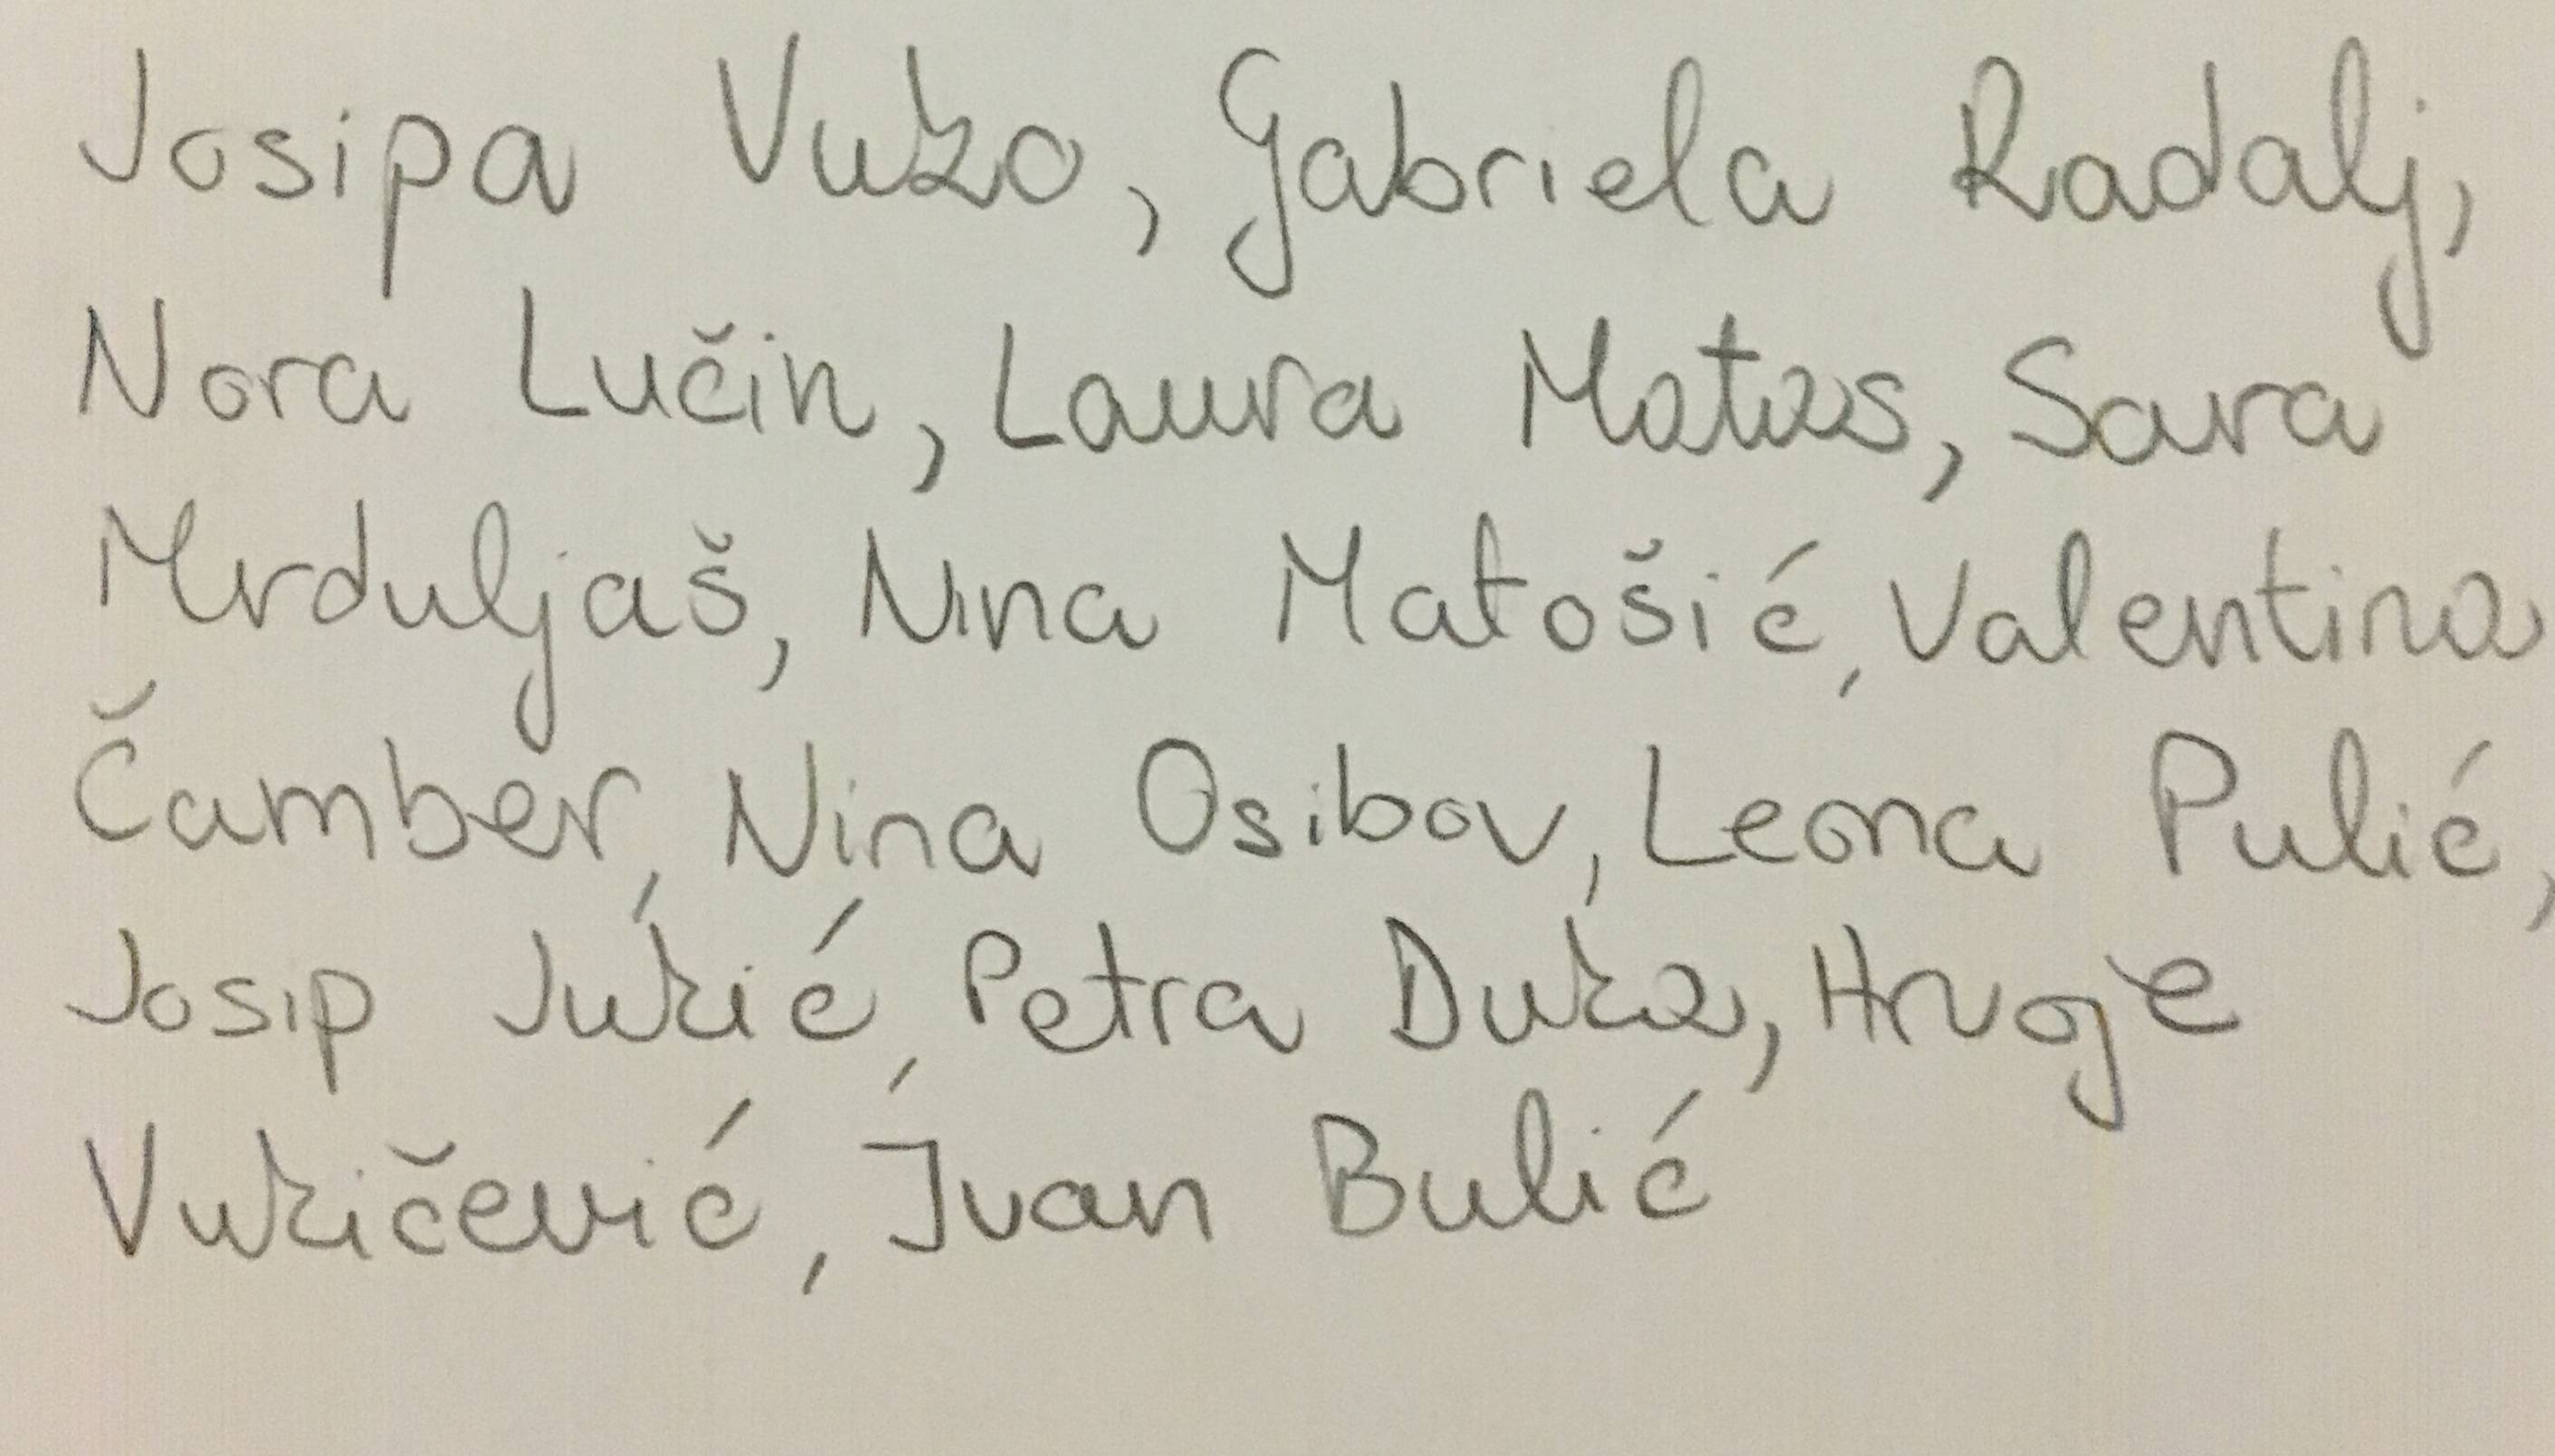 Josipa Vuko, Gabriela Radalj,
Nora Lučin, Laura Matas, Sara
Mrduljaš, Nina Matošić, Valentina
Čamber, Nina Osibov, Leona Pulić,
Josip Jukić, Petra Duka, Hrvoje
Vukičević, Ivan Bulić